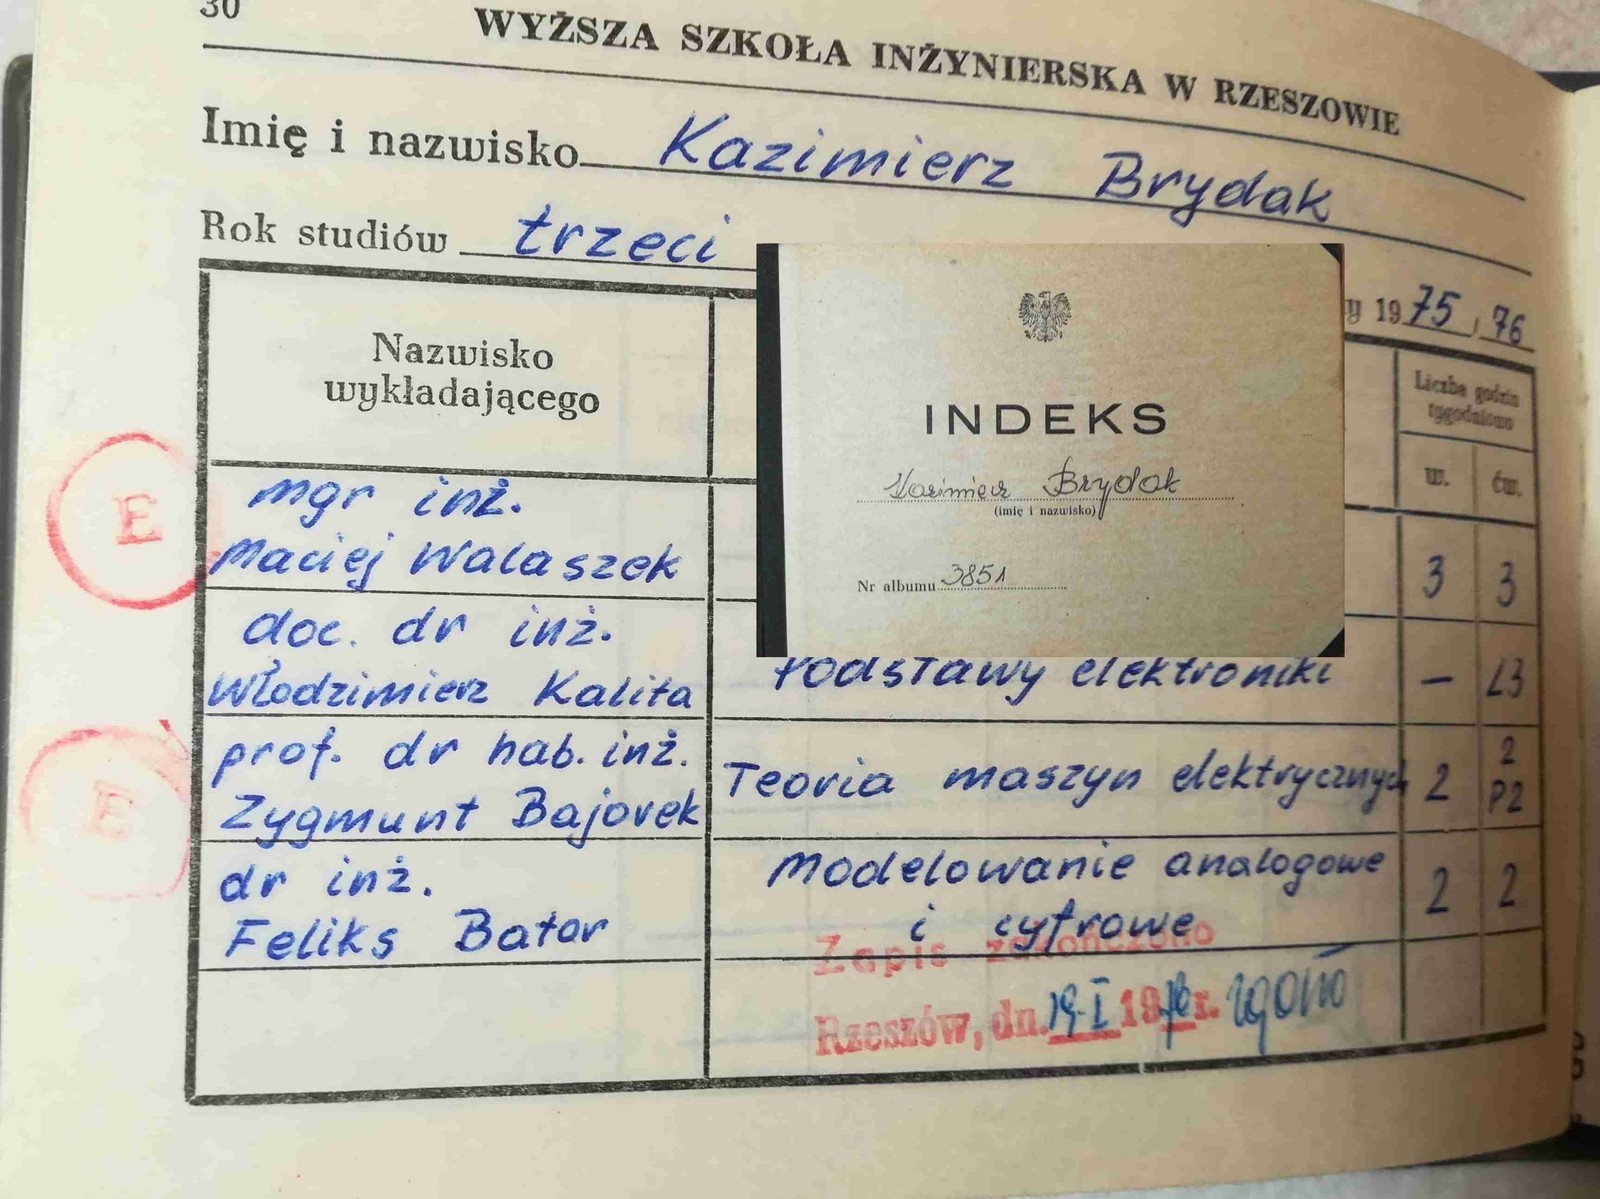 30
WYŻSZA SZKOŁA INŻYNIERSKA W RZESZOWIE
Imię i nazwisko Kazimierz Brydak
Rok studiów trzeci
y 1975/76
Nazwisko
wykładającego
Liczba godzin
tygodniowo
w. ćw.
INDEKS
Kazimierz Brydak
(imię i nazwisko)
Nr albumu 3851
E
mgr inż.
Maciej Walaszek
3 3
doc. dr inż.
Włodzimierz Kalita
Podstawy elektroniki
– L3
E
prof. dr hab. inż.
Zygmunt Bajorek
Teoria maszyn elektrycznych
2 2
P2
dr inż.
Feliks Bator
Modelowanie analogowe
i cyfrowe
2 2
Zapis zakończono
Rzeszów, dn. 19.I 1976 r.